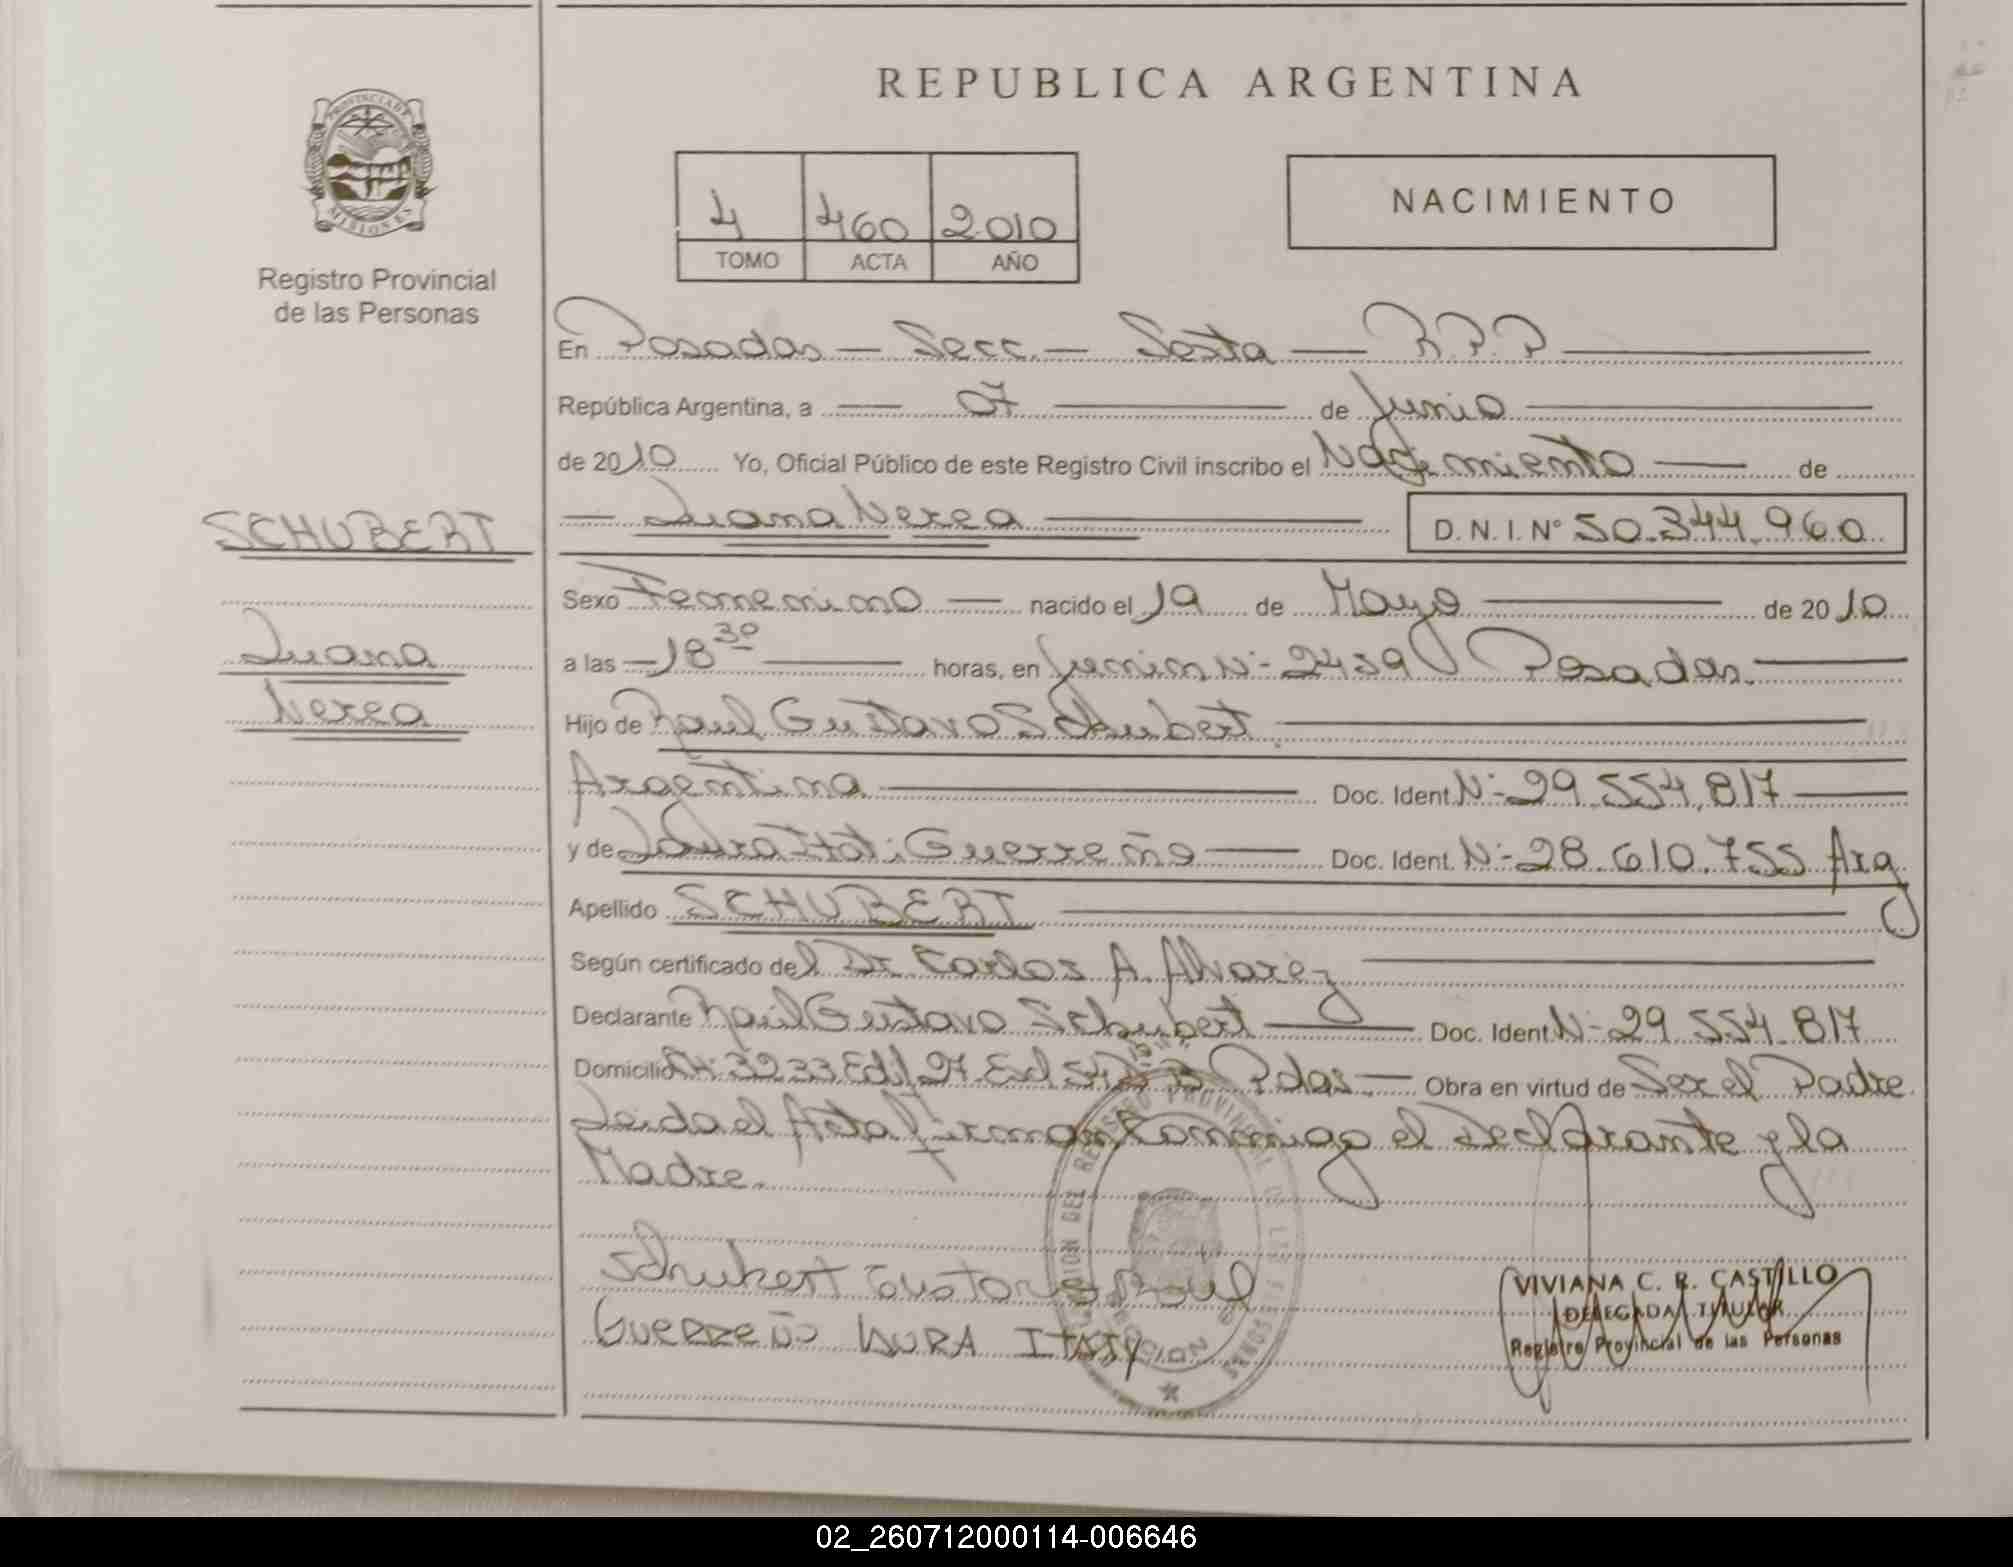 REPUBLICA ARGENTINA
PROVINCIA DE
MISIONES
Registro Provincial
de las Personas
4 460 2010
TOMO ACTA AÑO
NACIMIENTO
En Posadas — Secc. — Sexta — R.P.P
República Argentina, a 07 de Junio
de 2010 Yo, Oficial Público de este Registro Civil inscribo el Nacimiento de
SCHUBERT
Luana Nerea D.N.I.Nº 50.344.960
Sexo Femenino — nacido el 19 de Mayo de 2010
Luana
Nerea
a las 18 30 horas, en Junin Nº 2439 Posadas.
Hijo de Raul Gustavo Schubert
Argentina Doc. Ident. Nº 29.554.817
y de Laura Itatí Guerreño Doc. Ident. Nº 28.610.755 Arg
Apellido SCHUBERT
Según certificado del Dr Carlos A. Alvarez
Declarante Raúl Gustavo Schubert Doc. Ident. Nº 29.554.817
Domicilio Pdas — Obra en virtud de Ser el Padre
Leida el Acta Firman Conmigo el Declarante y la
Madre.
Schubert Gustavo Raul
Guerreño LAURA ITATI
VIVIANA C. R. CASTILLO
DELEGADA TITULAR
Registro Provincial de las Personas
02_260712000114-006646